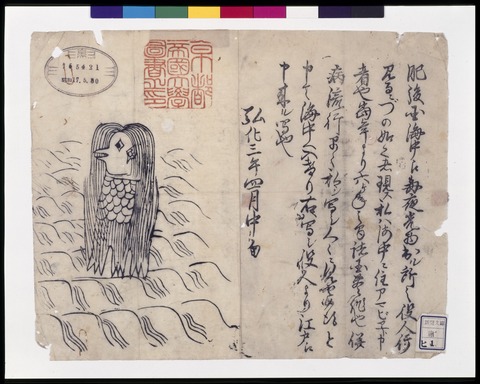 肥後国海中え毎夜光物出ル所之役人行
見るニづの如く者現ス私ハ海中ニ住アマビヱト申
者也當年より六ヶ年之間諸国豊作也併
病流行早々私シ写シ人々ニ見セ候得と
申て海中へ入けり右ハ写シ役人より江戸え
申来ル写也
弘化三年四月中旬
京都
帝國大學
圖書之印